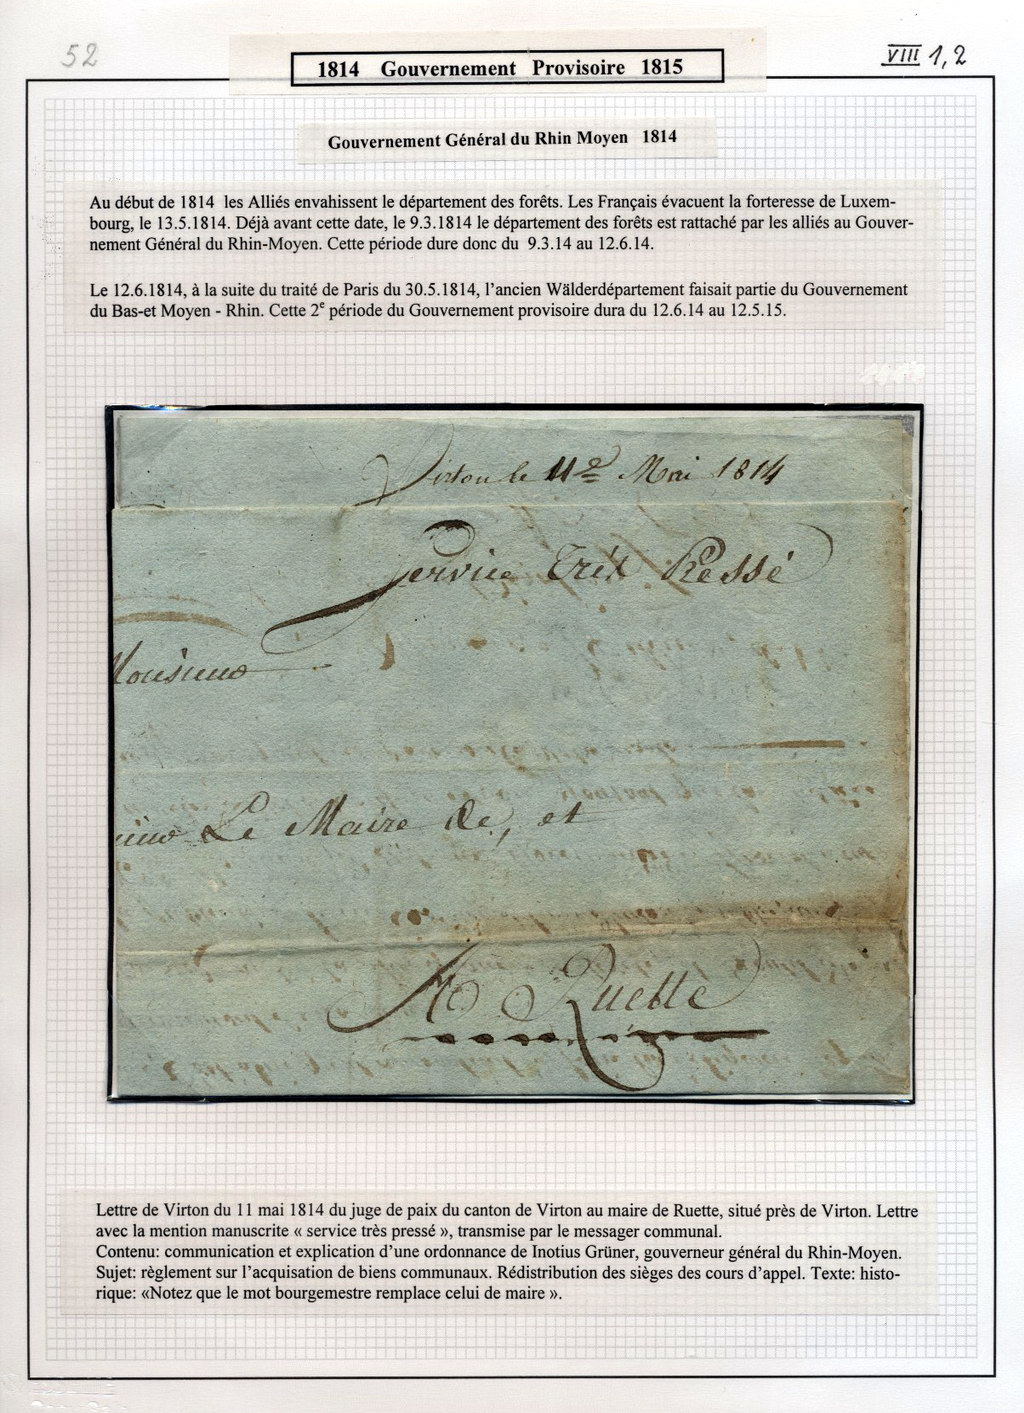 52
VIII 1,2
1814 Gouvernement Provisoire 1815
Gouvernement Général du Rhin Moyen 1814
Au début de 1814 les Alliés envahissent le département des forêts. Les Français évacuent la forteresse de Luxem-
bourg, le 13.5.1814. Déjà avant cette date, le 9.3.1814 le département des forêts est rattaché par les alliés au Gouver-
nement Général du Rhin-Moyen. Cette période dure donc du 9.3.14 au 12.6.14.
Le 12.6.1814, à la suite du traité de Paris du 30.5.1814, l'ancien Wälderdépartement faisait partie du Gouvernement
du Bas-et Moyen - Rhin. Cette 2e période du Gouvernement provisoire dura du 12.6.14 au 12.5.15.
Virton le 11e Mai 1814
Service Très Pressé
Monsieur
Le Maire de, et
A Ruette
Lettre de Virton du 11 mai 1814 du juge de paix du canton de Virton au maire de Ruette, situé près de Virton. Lettre
avec la mention manuscrite « service très pressé », transmise par le messager communal.
Contenu: communication et explication d'une ordonnance de Inotius Grüner, gouverneur général du Rhin-Moyen.
Sujet: règlement sur l'acquisation de biens communaux. Rédistribution des sièges des cours d'appel. Texte: histo-
rique: «Notez que le mot bourgemestre remplace celui de maire ».